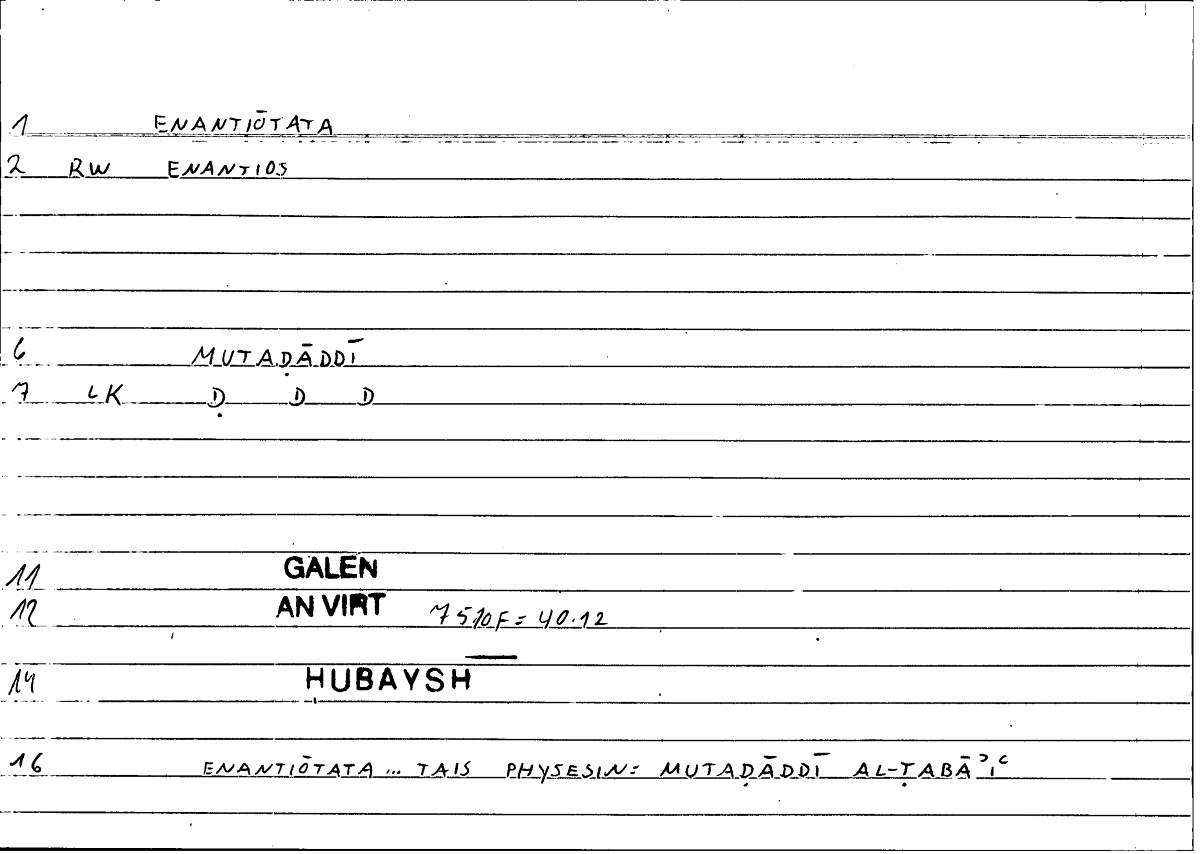 1 ENANTIŌTATA
2 RW ENANTIOS
6 MUTAḌĀDDĪ
7 LK Ḍ D D
11 GALEN
12 AN VIRT 7 510F = 40.12
14 ḤUBAYSH
16 ENANTIŌTATA ... TAIS PHYSESIN: MUTAḌĀDDĪ AL-ṬABĀʾIʿ